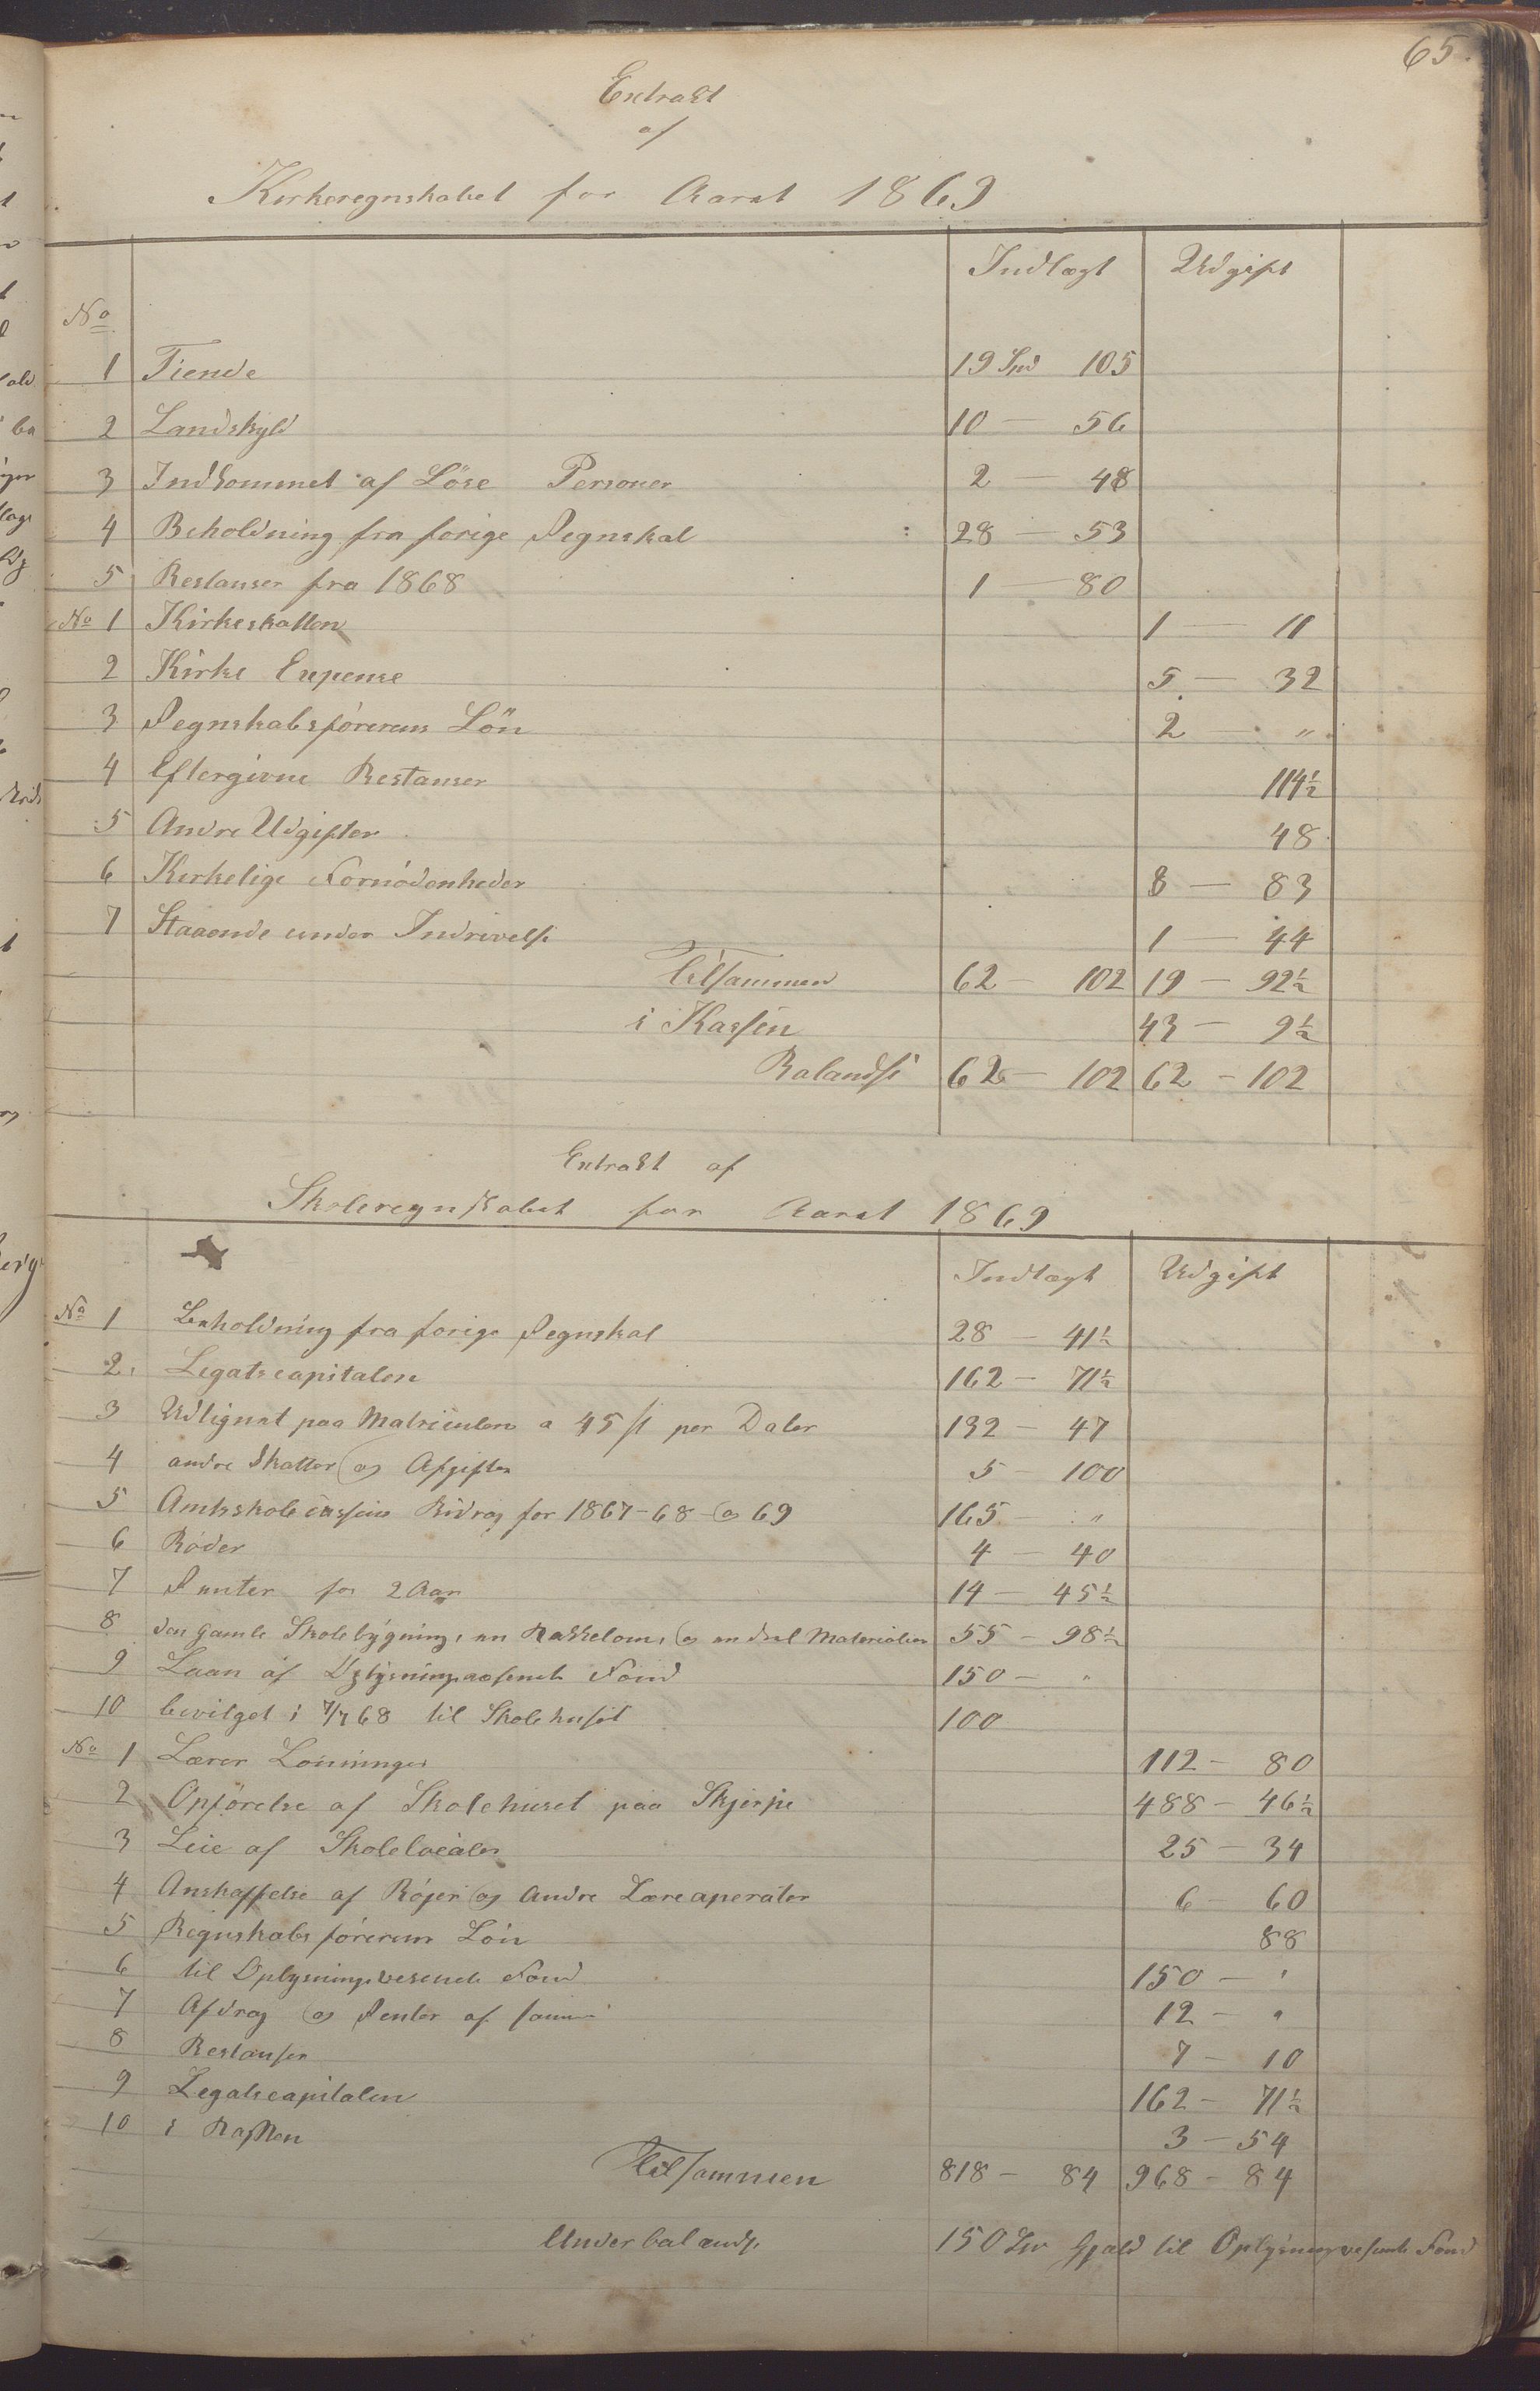 65.
Extrakt
af
Kirkeregnskabet for Aaret 1869
Indtægt Udgift
No
1 Tiende 19 Spd 105
2 Landskyld 10 — 56
3 Indkommet af Löse Personer 2 — 48
4 Beholdning fra forige Regnskab 28 — 53
5 Restanser fra 1868 1 — 80
No 1 Kirkeskatten 1 — 11
2 Kirke Expense 5 — 32
3 Regnskabsförerens Lön 2 — "
4 Eftergivne Restanser 114½
5 Andre Udgifter 48
6 Kirkelige Fornödenheder 8 — 83
7 Staaende under Indrivelse 1 — 44
Tilsammen 62 — 102 19 — 92½
i Kassen 43 — 9½
Balandse 62 — 102 62 — 102
Extrakt af
Skoleregnskabet for Aaret 1869
Indtægt Udgift
No 1 Beholdning fra forige Regnskab 28 — 41½
2 Legatscapitalen 162 — 71½
3 Udlignet paa Matriculen a 45 ß per Daler 132 — 47
4 andre Skatter og Afgifter 5 — 100
5 Amtsskolecassens Bidrag for 1867-68 og 69 165 — "
6 Böder 4 — 40
7 Renter for 2 Aar 14 — 45½
8 den gamle Skolebygning, en Kakkelovn, og en deel Materialier 55 — 98½
9 Laan af Oplysningsvæsenets Fond 150 — "
10 bevilget i 7/7 68 til Skolehuset 100
No 1 Lærer Lönninger 112 — 80
2 Opförelse af Skolehuset paa Skjerpe 488 — 46½
3 Leie af Skolelocaler 25 — 34
4 Anskaffelse af Böger og Andre Læreaperater 6 — 60
5 Regnskabsförerens Lön 88
6 til Oplysningsvesenets Fond 150 — "
7 Afdrag og Renter af samme 12 — "
8 Restanser 7 — 10
9 Legatscapitalen 162 — 71½
10 i Kassen 3 — 54
Tilsammen 818 — 84 968 — 84
Underbalandse 150 Gjæld til Oplysningsvesenets Fond